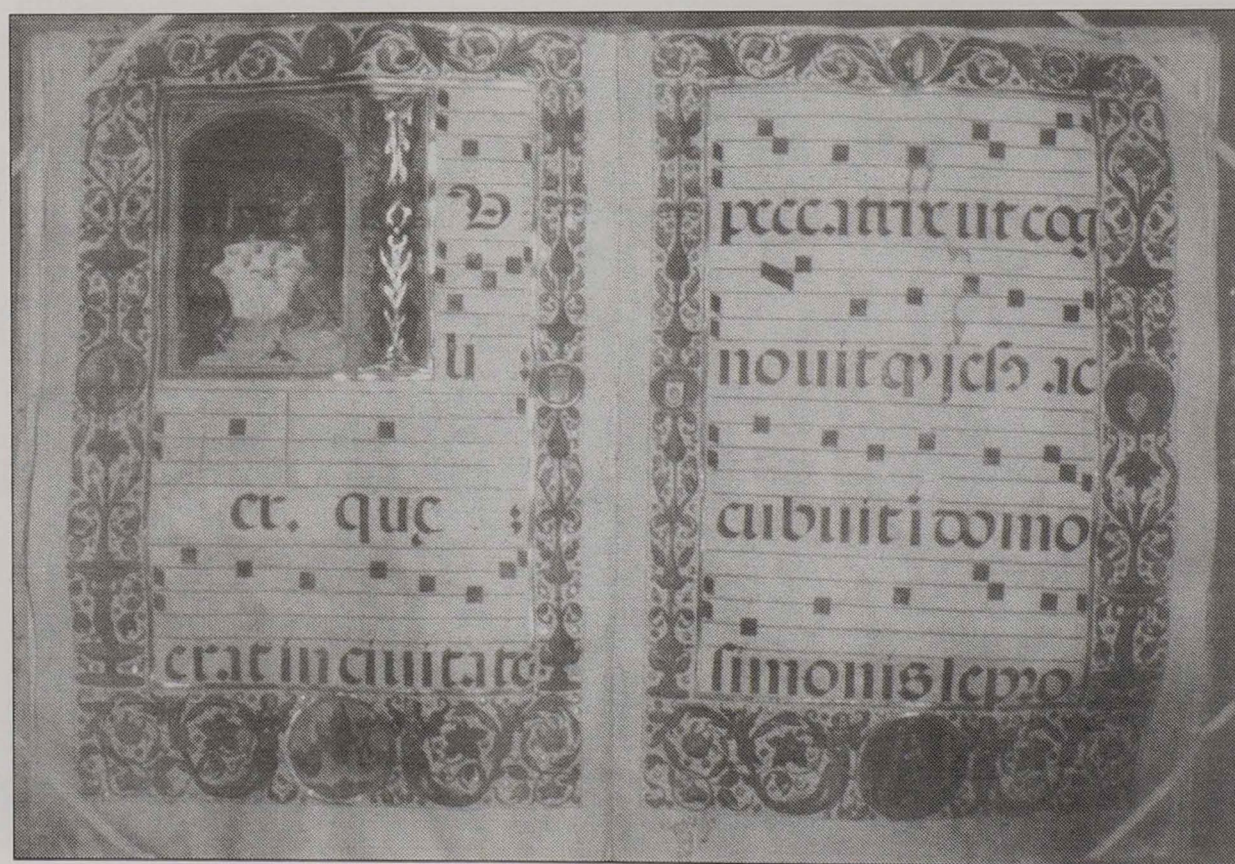 V
li
er. quę
erat in ciuitate
peccatrix ut cog
nouit ꝙ jesɥ ac
cubuit i domo
simonis lepro